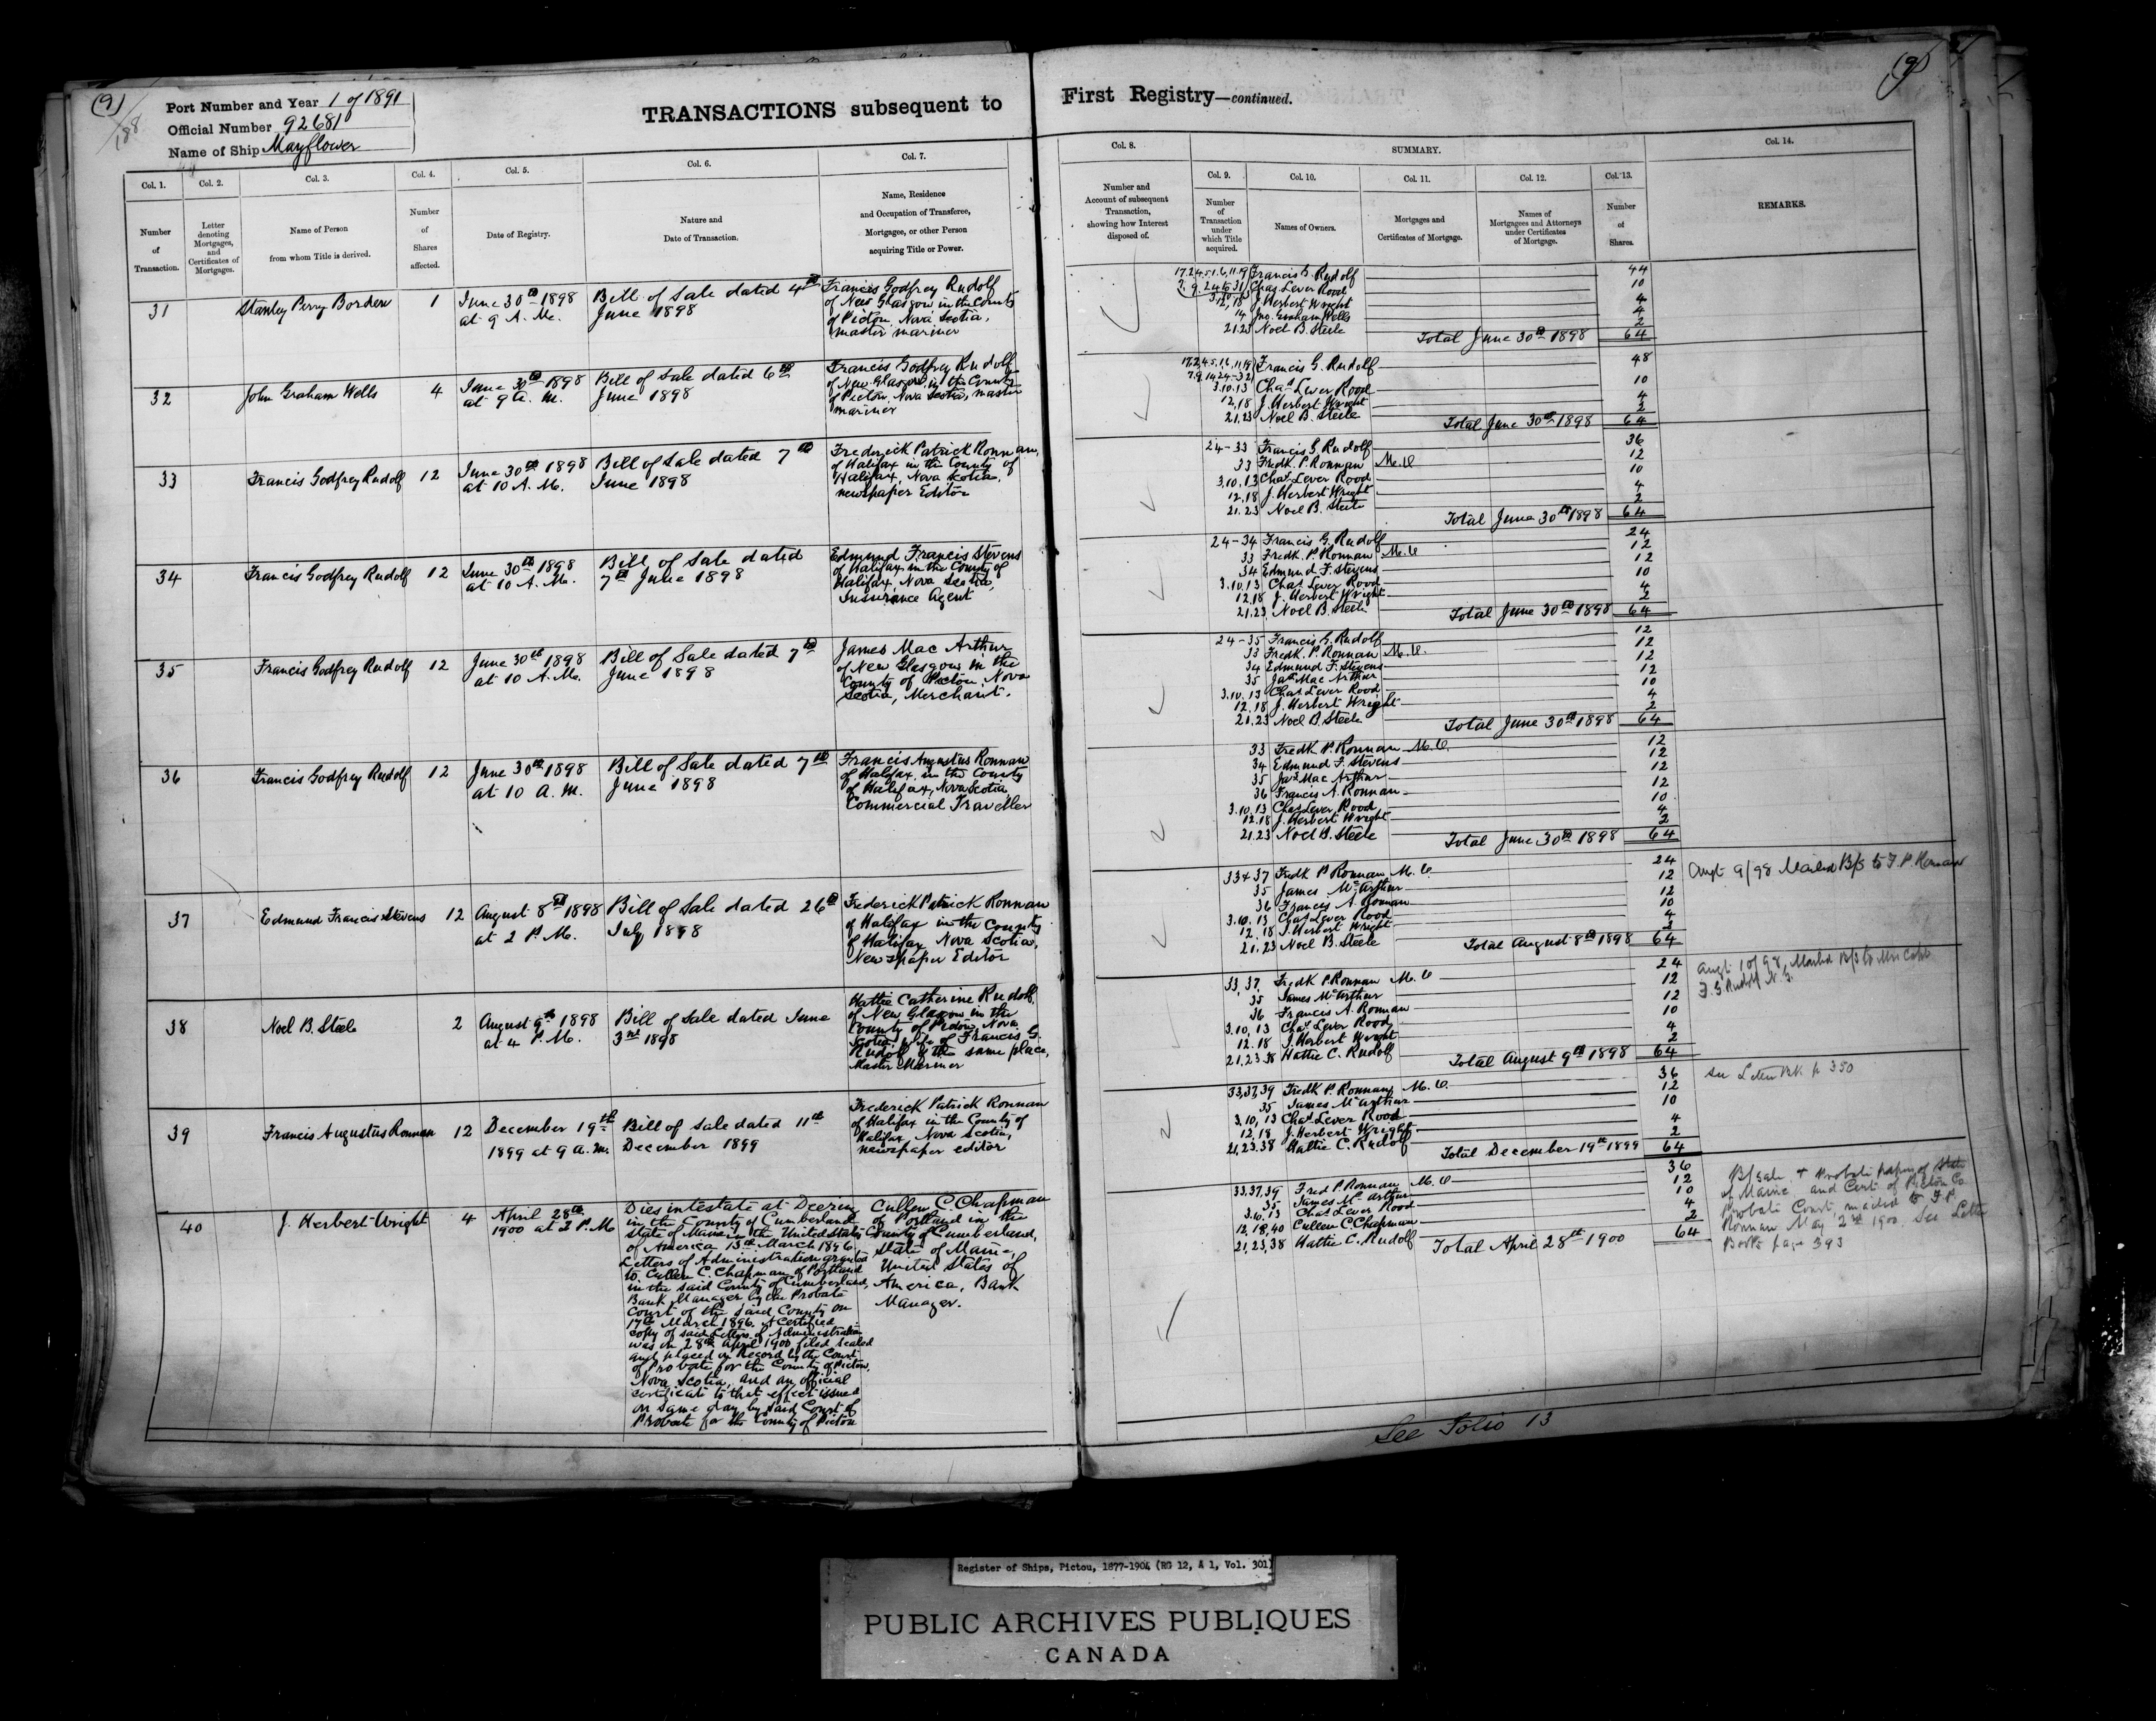 (9)
Port Number and Year 1 of 1891
Official Number 92681
Name of Ship Mayflower
188
TRANSACTIONS subsequent to
Col. 1.
Col. 2.
Col. 3.
Col. 4.
Col. 5.
Col. 6.
Col. 7.
Number
of
Transaction.
Letter
denoting
Mortgages,
and
Certificates of
Mortgages.
Name of Person
from whom Title is derived.
Number
of
Shares
affected.
Date of Registry.
Nature and
Date of Transaction.
Name, Residence
and Occupation of Transferee,
Mortgagee, or other Person
acquiring Title or Power.
31
Stanley Perry Borden
1
June 30th 1898
at 9 A. M.
Bill of Sale dated 4th
June 1898
Francis Godfrey Rudolf
of New Glasgow in the County
of Pictou, Nova Scotia,
master mariner
32
John Graham Wells
4
June 30th 1898
at 9 a. m.
Bill of Sale dated 6th
June 1898
Francis Godfrey Rudolf
of New Glasgow, in the County
of Pictou, Nova Scotia, master
mariner
33
Francis Godfrey Rudolf
12
June 30th 1898
at 10 A. M.
Bill of Sale dated 7th
June 1898
Frederick Patrick Ronnan,
of Halifax in the County of
Halifax, Nova Scotia,
newspaper Editor
34
Francis Godfrey Rudolf
12
June 30th 1898
at 10 A. M.
Bill of Sale dated
7th June 1898
Edmund Francis Stevens
of Halifax in the County of
Halifax, Nova Scotia,
Insurance Agent
35
Francis Godfrey Rudolf
12
June 30th 1898
at 10 A. M.
Bill of Sale dated 7th
June 1898
James Mac Arthur
of New Glasgow in the
County of Pictou, Nova
Scotia, Merchant.
36
Francis Godfrey Rudolf
12
June 30th 1898
at 10 A. M.
Bill of Sale dated 7th
June 1898
Francis Augustus Ronnan
of Halifax, in the County
of Halifax, Nova Scotia
Commercial Traveller
37
Edmund Francis Stevens
12
August 8th 1898
at 2 P. M.
Bill of Sale dated 26th
July 1898
Frederick Patrick Ronnan
of Halifax in the County
of Halifax, Nova Scotia,
Newspaper Editor
38
Noel B. Steele
2
August 9th 1898
at 4 P. M.
Bill of Sale dated June
3rd 1898
Hattie Catherine Rudolf,
of New Glasgow in the
County of Pictou, Nova
Scotia, wife of Francis G.
Rudolf of the same place,
Master Mariner
39
Francis Augustus Ronnan
12
December 19th
1899 at 9 a. m.
Bill of Sale dated 11th
December 1899
Frederick Patrick Ronnan
of Halifax in the County of
Halifax, Nova Scotia,
newspaper editor
40
J. Herbert Wright
4
April 28th
1900 at 2 P. M.
Dies intestate at Deering
in the County of Cumberland
State of Maine in the United States
of America 13th March 1896.
Letters of Administration granted
to Cullen C. Chapman of Portland
in the said County of Cumberland,
Bank Manager by the Probate
Court of the said County on
17th March 1896. A certified
copy of said Letters of Administration
was on 28th April 1900 filed sealed
and placed on Record by the Court
of Probate for the County of Pictou,
Nova Scotia, and an official
certificate to that effect issued
on same day by said Court of
Probate for the County of Pictou
Cullen C. Chapman
of Portland in the
County of Cumberland,
State of Maine,
United States of
America, Bank
Manager.
(9)
First Registry—continued.
Col. 8.
SUMMARY.
Col. 14.
Col. 9.
Col. 10.
Col. 11.
Col. 12.
Col. 13.
Number and
Account of subsequent
Transaction,
showing how Interest
disposed of.
Number
of
Transaction
under
which Title
acquired.
Names of Owners.
Mortgages and
Certificates of Mortgage.
Names of
Mortgagees and Attorneys
under Certificates
of Mortgage.
Number
of
Shares.
REMARKS.
Francis G. Rudolf 44
Chas Lever Rood 10
12,18 J. Herbert Wright 4
14 Jno. Graham Wells 4
21.23 Noel B. Steele 2
Total June 30th 1898 64
Francis G. Rudolf 48
3.10.13 Chas Lever Rood 10
12,18 J. Herbert Wright 4
21,23 Noel B. Steele 2
Total June 30th 1898 64
24-33 Francis G. Rudolf 36
33 Fredk. P. Ronnan M.O 12
3,10,13 Chas Lever Rood 10
12.18 J. Herbert Wright 4
21.23 Noel B. Steele 2
Total June 30th 1898 64
24-34 Francis G. Rudolf 24
33 Fredk. P. Ronnan M.O 12
34 Edmund F. Stevens 12
3.10,13 Chas Lever Rood 10
12.18 J. Herbert Wright 4
21.23 Noel B. Steele 2
Total June 30th 1898 64
24-35 Francis G. Rudolf 12
33 Fredk. P. Ronnan M.O. 12
34 Edmund F. Stevens 12
35 Jas Mac Arthur 12
3.10.13 Chas Lever Rood 10
12.18 J. Herbert Wright 4
21.23 Noel B. Steele 2
Total June 30th 1898 64
33 Fredk P. Ronnan M.O. 12
34 Edmund F. Stevens 12
35 Jas Mac Arthur 12
36 Francis A. Ronnan 12
3.10,13 Chas Lever Rood 10
12.18 J. Herbert Wright 4
21.23 Noel B. Steele 2
Total June 30th 1898 64
33+37 Fredk P Ronnan M.O. 24
35 James McArthur 12
36 Francis A. Ronnan 12
3.10,13 Chas Lever Rood 10
12.18 J. Herbert Wright 4
21,23 Noel B. Steele 2
Total August 8th 1898 64
Augt 9/98 Mailed B/S to F. P. Ronnan
33,37, Fredk P. Ronnan M.O 24
35 James McArthur 12
36 Francis A. Ronnan 12
3.10,13 Chas Lever Rood 10
12.18 J. Herbert Wright 4
21,23.38 Hattie C. Rudolf 2
Total August 9th 1898 64
Augt 10/98, Mailed B/S to Mrs Capt.
F. G Rudolf N. G.
33,37,39 Fredk P. Ronnan M.O. 36
35 James McArthur 12
3,10,13 Chas Lever Rood 10
12,18 J. Herbert Wright 4
21,23.38 Hattie C. Rudolf 2
Total December 19th 1899 64
See Letter Bk p 350
33,37,39 Fred P. Ronnan M.O 36
35 James McArthur 12
3.10,13 Chas Lever Rood 10
12,18,40 Cullen C. Chapman 4
21,23,38 Hattie C. Rudolf 2
Total April 28th 1900 64
B/Sale + Probate papers of State
of Maine and Cert. of Pictou Co.
Probate Court, mailed to F. P.
Ronnan May 2nd 1900. See Letter
Book page 393
See Folio 13
Register of Ships, Pictou, 1877-1904 (RG 12, A 1, Vol. 301)
PUBLIC ARCHIVES PUBLIQUES
CANADA